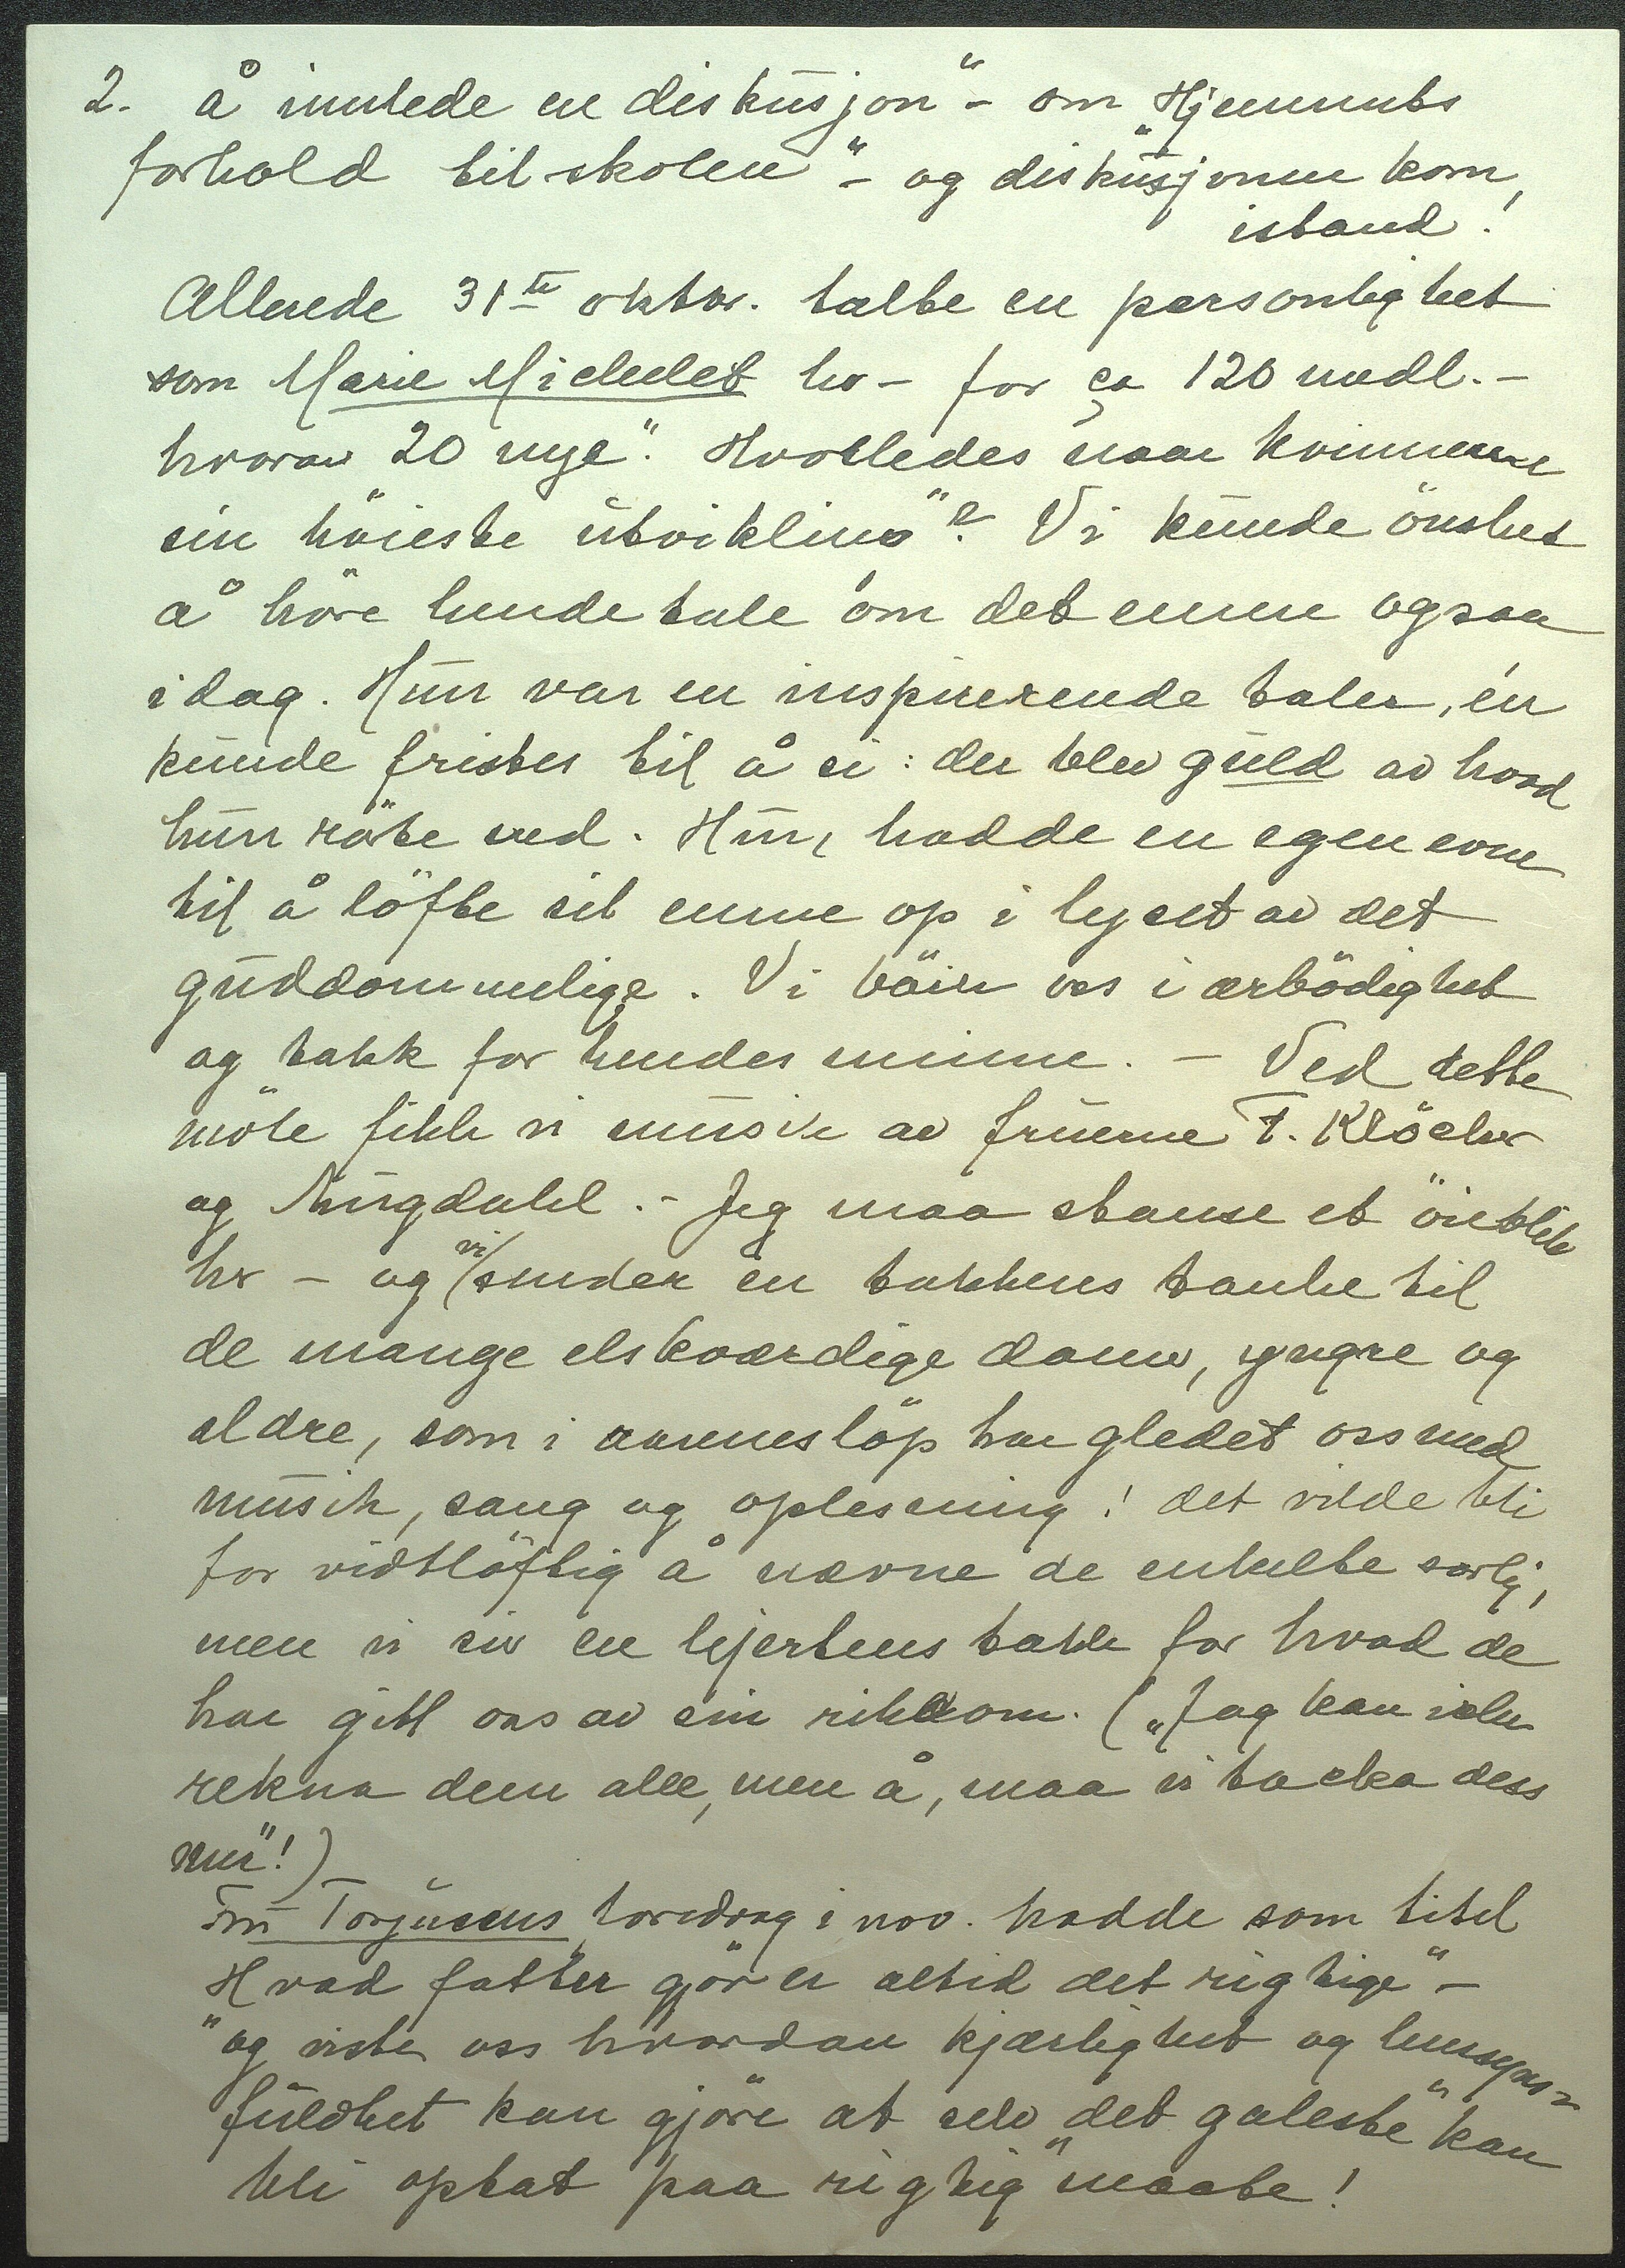 2. å innlede en diskusjon" - om "Hjemmets
forhold til skolen" - og diskusjonen kom
istand!
Allerede 31te oktbr. talte en personlighet
som Marie Michelet her - for ca 120 medl. -
hvorav 20 nye". Hvorledes naar kvinnerne
sin höieste utvikling"? Vi kunde önsket
å höre hende tale om det emne ogsaa
idag. Hun var en inspirerende taler, én
kunde fristes til å si: der blev guld av hvad
hun rörte ved. Hun hadde en egen evne
til å löfte sit emne op i lyset av det
guddommelige. Vi böier oss i ærbödighet
og takk for hendes minne. - Ved dette
möte fikk vi musik av fruerne T. Klöcker
og Ningdahl. - Jeg maa stanse et öieblik
her - og vi sender en takkens tanke til
de mange elskværdige damer, yngre og
eldre, som i aarenes löp har gledet oss med
musik, sang og oplesning! det vilde bli
for vidtlöftig å nævne de enkelte særlig,
men vi sier en hjertens takk for hvad de
har gitt oss av sin rikdom. ("Jag kan icke
rekna dem alle, men å, maa vi tacka dess
mer"!)
Fru Torjusens foredrag i nov. hadde som titel
"Hvad fatter gjör er altid det rigtige" -
og viste oss hvordan kjærlighet og hensyns-
fuldhet kan gjöre at selv "det galeste" kan
bli optat paa "rigtig" maate!